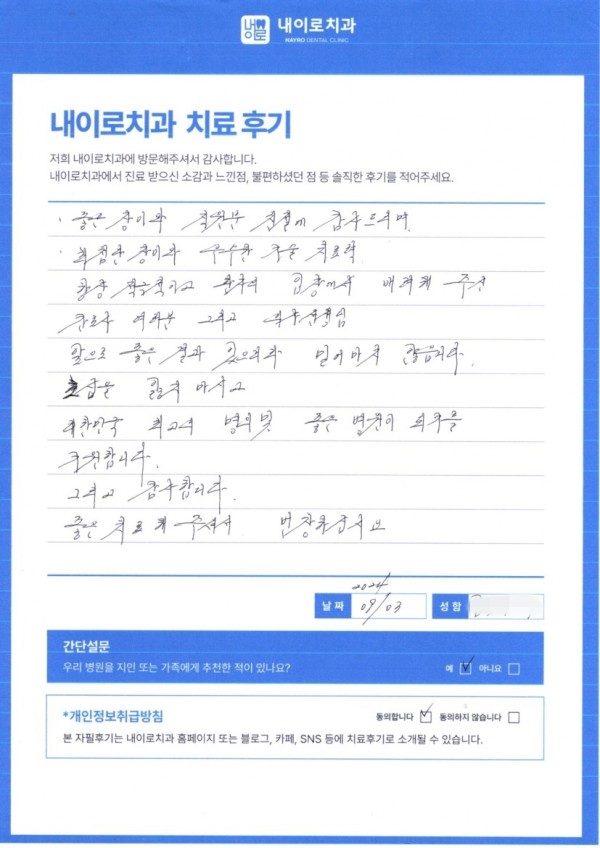 내이로
내이로치과
NAYRO DENTAL CLINIC
내이로치과 치료 후기
저희 내이로치과에 방문해주셔서 감사합니다.
내이로치과에서 진료 받으신 소감과 느낀점, 불편하셨던 점 등 솔직한 후기를 적어주세요.
· 좋은 장비와 친절에 감사드리며
· 최첨단 장비와 우수한 기술 치료력
항상 환자의 입장에서 배려해 주신
간호사 여러분 그리고
앞으로 좋은 결과 있으리라 믿어마지 않습니다.
마시고
대한민국 최고의 병의원 좋은 병원이 되기를
그리고 감사합니다.
좋은 치료 해 주셔서 번창하십시요
날짜
2024
09/03
성함
간단설문
우리 병원을 지인 또는 가족에게 추천한 적이 있나요?
예 아니요
*개인정보취급방침
동의합니다 동의하지 않습니다
본 자필후기는 내이로치과 홈페이지 또는 블로그, 카페, SNS 등에 치료후기로 소개될 수 있습니다.